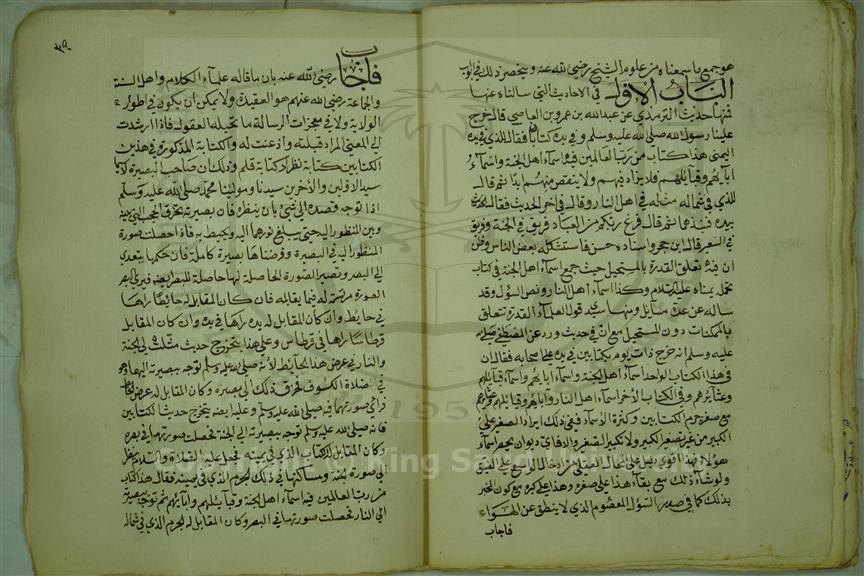 هو جمع ما سمعناه من علوم الشيخ رضي الله عنه وينحصر ذلك في ابواب
الباب الاول في الاحاديث التي سالناه عنها
فمنها حديث الترمذي عن عبد الله بن عمرو بن العاصي قال خرج
علينا رسول الله صلى الله عليه وسلم وفي يده كتابان فقال للذي في يده
اليمنى هذا كتاب من رب العالمين فيه اسماء اهل الجنة واسماء
ابائهم وقبائلهم فلا يزاد فيهم ولا ينقص منهم ابدا ثم قال
للذي في شماله مثله في اهل النار وقال في اخر الحديث فقال
بيده فنبذهما ثم قال فرغ ربكم من العباد فريق في الجنة وفريق
في السعير قال ابن حجر واسناده حسن فاستشكله بعض الناس وظن
ان فيه تعلق القدرة بالمستحيل حيث جمع اسماء اهل الجنة في كتاب
تحمله يمناه عليه السلام وكذا اسماء اهل النار ونص السؤل وقد
ساله عن عدة مسايل ومنها سيدي قول اهل القدرة تتعلق
بالممكنات دون المستحيل مع ان في حديث ورد عن المصطفى صلى الله
عليه وسلم انه خرج ذات يوم بكتابين في يده على اصحابه فقال ان
في هذا الكتاب الواحد اسماء اهل الجنة واسماء ابائهم واسماء قبائلهم
وعشائرهم وفي الكتاب الاخر اسماء اهل النار وابائهم وقبائلهم وعشائرهم
مع صغر جرم الكتابين وكثرة الاسماء ففي ذلك ايراد الصغير على
الكبير من غير تصغير الكبير ولا تكبير الصغير والا فاي ديوان يحصر اسماء
هؤلاء فهذا اقوي دليل على المحال العقلي من ادخال الواسع على الضيق
ولو شاء ذلك مع بقاء هذا على صغره وهذا على كبره مع كون المخبر
بذلك كما في صدر السؤل المعصوم الذي لا ينطق عن الهواء
فاجاب
٣٩
فاجاب رضي الله عنه بان ما قاله علماء الكلام واهل السنة
والجماعة رضي الله عنهم هو العقيدة ولا يمكن ان يكون في اطوار
الولاية ولا في معجزات الرسالة ما تحيله العقول فاذا ارشدت
الى المعنى المراد قبلته واذعنت له والكتابة المذكورة في هذين
الكتابين كتابة نظر لا كتابة قلم وذلك ان صاحب البصيرة لا سيما
سيد الاولين والاخرين سيدنا ومولينا محمد صلى الله عليه وسلم
اذا توجه قصده الى شيئ بان ينظره فان بصيرته تخرق الحجب التي بينه
وبين المنظور اليه حتى يبلغ نورها اليه ويحيط به فاذا حصلت صورة
المنظور اليه في البصيرة وفرضناها بصيرة كاملة فان حكمها يتعدى
الى البصر وتصير الصورة الحاصلة لها حاصلة للبصر ايضا فيرى البصر
الصورة مرتسمة له فيما يقابله فان كان المقابل له حائطا راها
في حائط وان كان المقابل له يده راها في يده وان كان المقابل
قرطاسا راها في قرطاس وعلى هذا يتخرج حديث مثلت لي الجنة
والنار في عرض هذا الحائط لانه صلى الله عليه وسلم توجه ببصيرته اليهما وهو
في صلاة الكسوف فخرق ذلك الى بصره وكان المقابل له عرض الحائط
فراى صورتهما فيه صلى الله عليه وسلم وعليه ايضا يتخرج حديث الكتابين
فانه صلى الله عليه وسلم توجه ببصيرته الى الجنة فحصلت صورتها في بصره
وكان المقابل للكتاب الذي في يمينه فجعل عليه الصلاة والسلام ينظر
الى صورة الجنة وسكانها في ذلك الجرم الذي في يمينه فقال هذا كتاب
من رب العالمين فيه اسماء اهل الجنة وقبائلهم وابائهم ثم توجه ببصيرته
الى النار فحصلت صورتها في البصر وكان المقابل له الجرم الذي في شماله
Copyright © King Saud University
1957